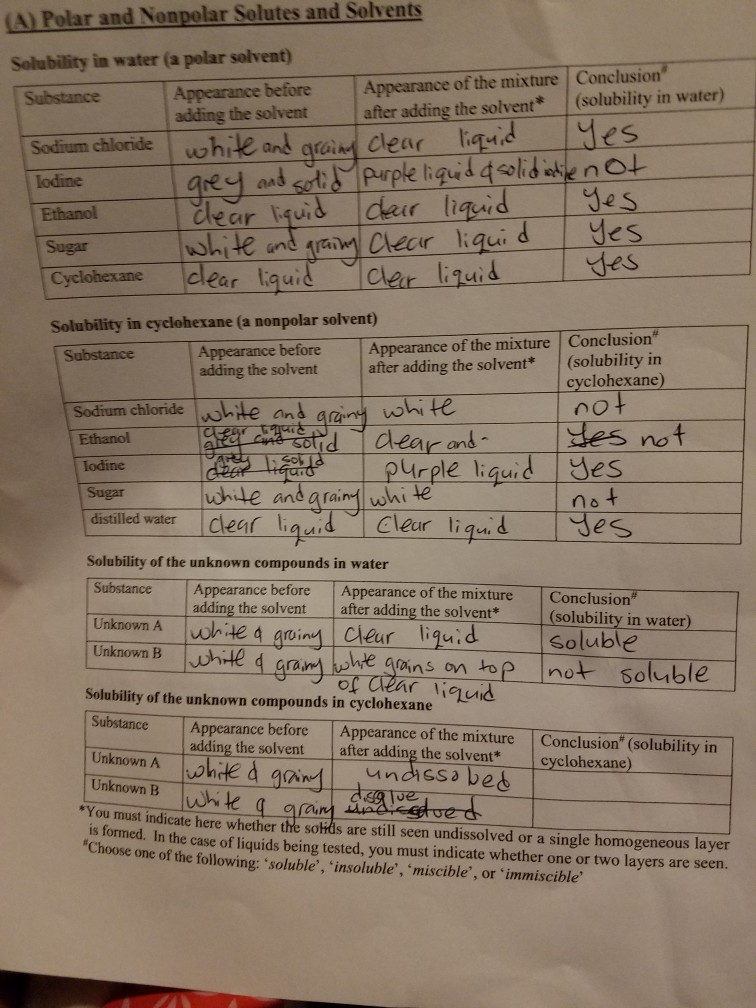 (A) Polar and Nonpolar Solutes and Solvents
Solubility in water (a polar solvent)
Substance Appearance before adding the solvent Appearance of the mixture after adding the solvent* Conclusion# (solubility in water)
Sodium chloride white and grainy clear liquid Yes
Iodine grey and solid purple liquid & solid not
Ethanol clear liquid clear liquid Yes
Sugar white and grainy clear liquid Yes
Cyclohexane clear liquid clear liquid Yes
Solubility in cyclohexane (a nonpolar solvent)
Substance Appearance before adding the solvent Appearance of the mixture after adding the solvent* Conclusion# (solubility in cyclohexane)
Sodium chloride white and grainy white not
Ethanol clear liquid grey and solid clear and - Yes not
Iodine grey solid clear liquid purple liquid Yes
Sugar white and grainy white not
distilled water clear liquid clear liquid Yes
Solubility of the unknown compounds in water
Substance Appearance before adding the solvent Appearance of the mixture after adding the solvent* Conclusion# (solubility in water)
Unknown A white & grainy clear liquid soluble
Unknown B white & grainy white grains on top of clear liquid not soluble
Solubility of the unknown compounds in cyclohexane
Substance Appearance before adding the solvent Appearance of the mixture after adding the solvent* Conclusion# (solubility in cyclohexane)
Unknown A white & grainy
Unknown B white & grainy
*You must indicate here whether the solids are still seen undissolved or a single homogeneous layer
is formed. In the case of liquids being tested, you must indicate whether one or two layers are seen.
#Choose one of the following: 'soluble', 'insoluble', 'miscible', or 'immiscible'